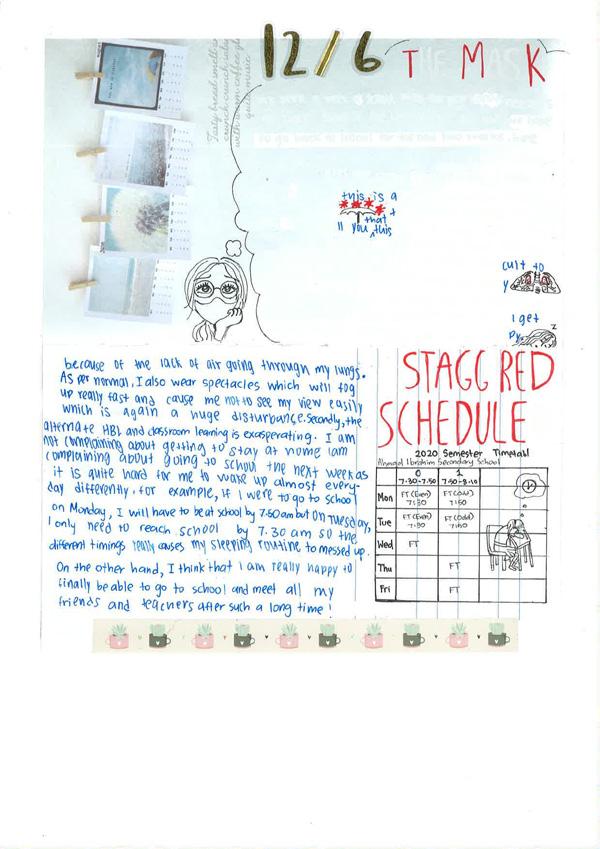 12/6
T M K
Tasty bread smell
crunch crunch
with warm coffee
quiet music
this is a
that
ll you this
cult to
y
I get
z
because of the lack of air going through my lungs.
As per normal, I also wear spectacles which will fog
up really fast and cause me not to see my view easily
which is again a huge disturbance. Secondly, the
alternate HBL and classroom learning is exasperating. I am
not complaining about getting to stay at home iam
complaining about going to school the next week as
it is quite hard for me to wake up almost every-
day differently. for example, if I were to go to school
on Monday, I will have to be at school by 7.50 am but on Tuesday,
I only need to reach school by 7.30 am so the
different timings really causes my sleeping routine to messed up.
On the other hand, I think that I am really happy to
finally be able to go to school and meet all my
friends and teachers after such a long time!
STAGG RED
SCHEDULE
2020 Semester Timetabl
Ahmad Ibrahim Secondary School
0 1
7.30-7.50 7.50-8.10
Mon FT (Even) 7:30 FT (Odd) 7:50
Tue FT (Even) 7:30 FT (Odd) 7:50
Wed FT
Thu FT
Fri FT